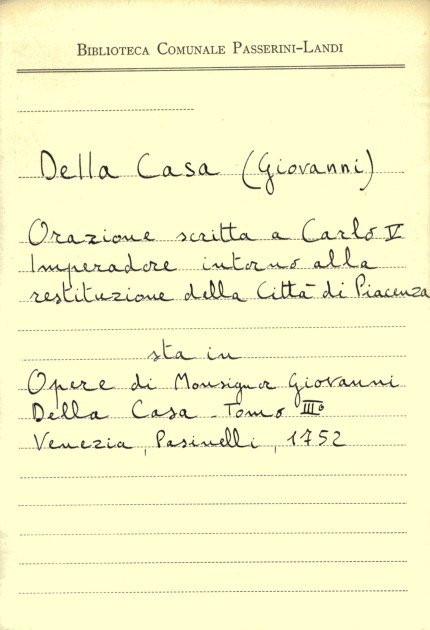 BIBLIOTECA COMUNALE PASSERINI-LANDI
Della Casa (Giovanni)
Orazione scritta a Carlo V
Imperadore intorno alla
restituzione della Città di Piacenza
sta in
Opere di Monsignor Giovanni
Della Casa - Tomo III°
Venezia, Pasinelli, 1752